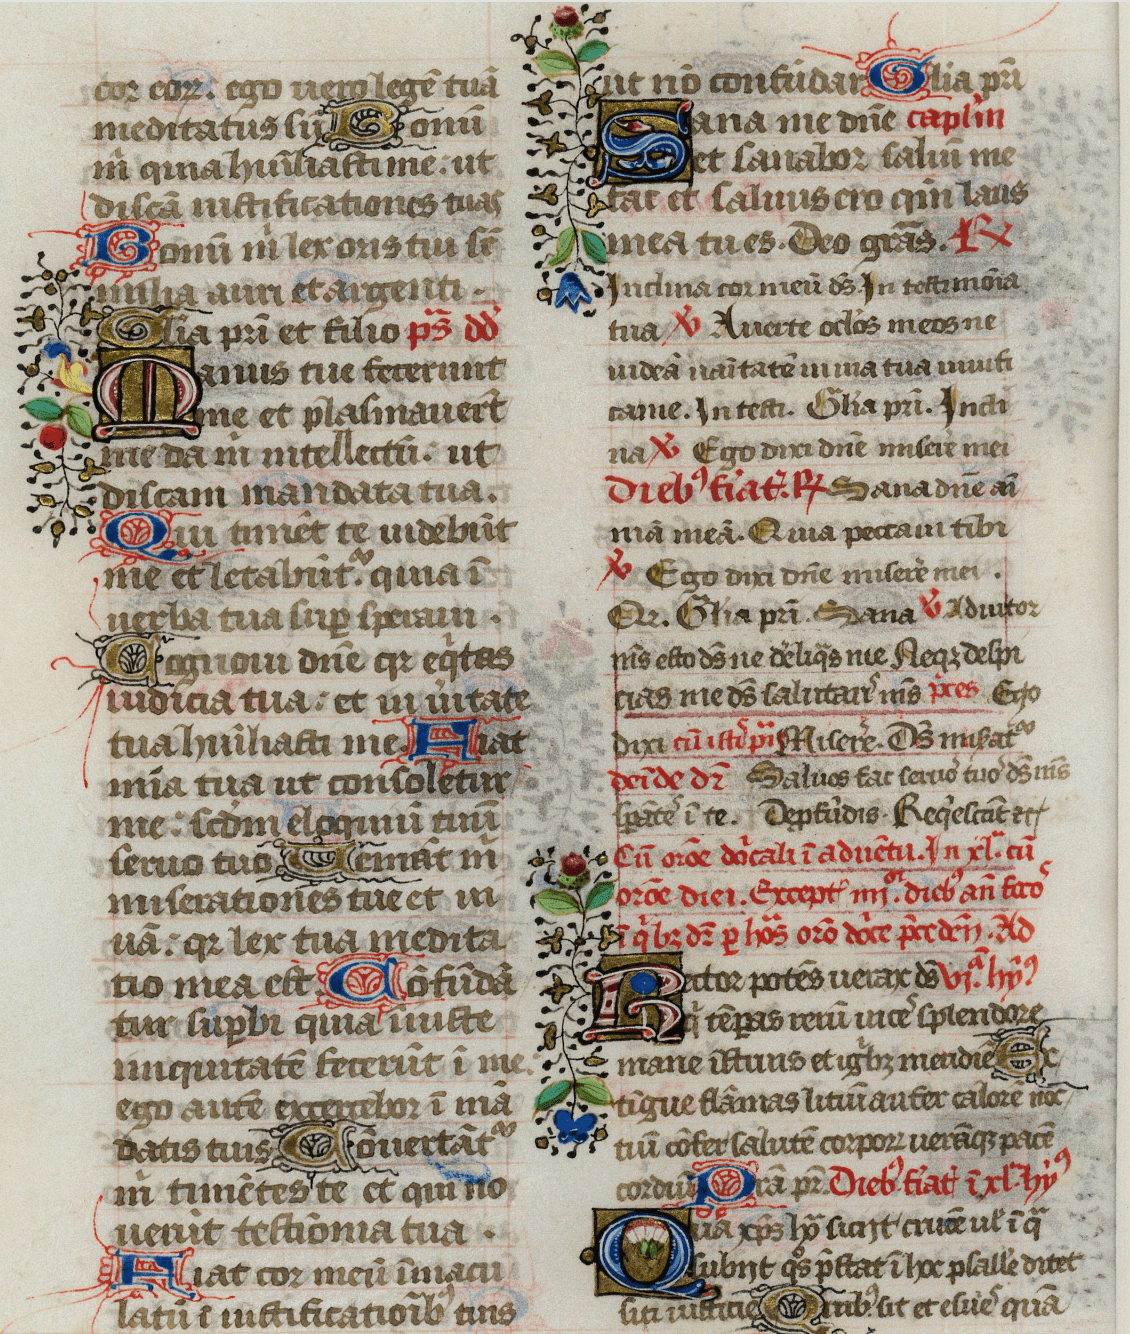 cor eorꝝ. ego uero legē tuā
meditatus sū Bonū
m̄ quia hūiliasti me. ut
discā iustificationes tuas
Bonū m̄ lex oris tui sr̄
milia auri et argenti.
Glia pr̄i et filio ps̄ dd̄
Manus tue fecerunt
me et plasmauert̄
me da m̄ intellectū. ut
discam mandata tua.
Qui timēt te uidebūt
me et letabūt᷑. quia ī
uerba tua sup̄ speraui.
Cognoui dn̄e qr eq̄tas
iudicia tua. et in ūitate
tua hūiliasti me Fiat
mīa tua ut consoletur
me. scd̄m eloquiū tuū
seruo tuo Ueniāt m̄
miserationes tue et ui
uā. qr lex tua medita
tio mea est. Cōfūdā
tur sup̄bi quia iniuste
iniquitatē fecerūt ī me.
ego autē exercebor ī mā
datis tuis Cōuertāt᷑
m̄ timētes te et qui no
uerūt testīonia tua.
Fiat cor meū īmacu
latū ī iustificatōib᷒ tuis
ut nō confūdar Glia pr̄i
Sana me dn̄e capl'm
et sanabor saluū me
fac et saluus ero qm̄ laus
mea tu es. Deo gr̄as. ℟
Inclina cor meū ds̄ In testimōia
tua ℣ Auerte oclōs meos ne
uideā uaītatē in uia tua uiuifi
ca me. In testi. Glia pr̄i. Incli
na ℣ Ego dixi dn̄e misere mei
Dieb᷒ fiat᷑. ℟ Sana dn̄e aī
mā meā. Quia peccaui tibi
℣ Ego dixi dn̄e miserē mei.
Qr. Glia pr̄i. Sana ℣ Adiutor
m̄s esto ds̄ ne dēliq̄s me Neqꝫ despi
cias me ds̄ salutar̄ m̄s p̄ces Ego
dixi cū ist̄ p̄s Miserē. Ds̄ misat᷑
deīde dr̄ Saluos fac seruo᷒ tuo᷒ ds̄ m̄s
sp̄ātē ī te. De p̄fūdis. Reqēscāt et̄
Cū orōe dn̄cali ī aduētu. In xl. cū
orōe diei. Except᷑ iiij. dieb᷒ añ
ī q̄bꝫ dr̄ p̄ hos orō dn̄ce p̄cedn̄. Ad
Rector potēs uerax ds̄ vj. hȳ᷒
q̄ tēp̄as rerū uice᷒ splendore
mane īstruis et ig̅bꝫ meridiē Ex
tīgue flāmas litiū aufer calorē nox
iū cōfer salutē corporꝝ uerāqꝫ pacē
cordiū Prā pr̄. Dieb᷒ fiat᷑ ī xl. hȳ᷒
Qua xp̄s hȳ sitijt crucē ul ī q̄
subijt q̄s p̄stat ī hoc psallē ditet
siti iusticie Quib᷒ sit et esuē quā